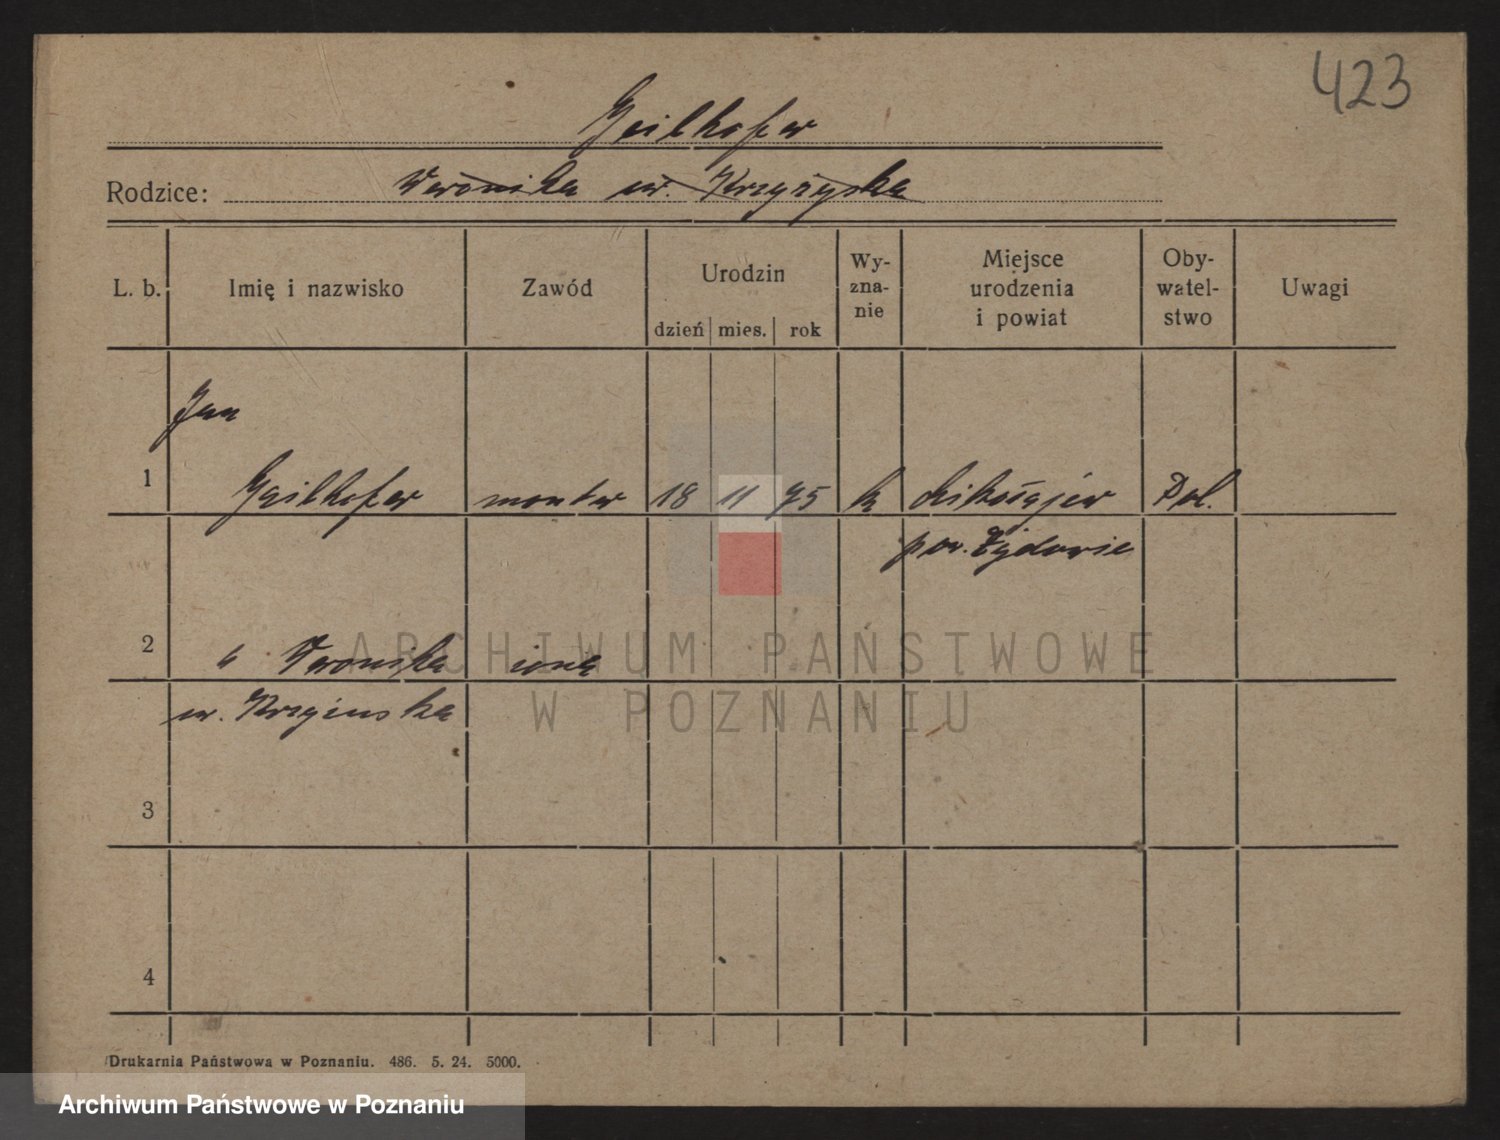 423
Geilhofer
Rodzice: Weronika ur. Krzyżyska
L. b. Imię i nazwisko Zawód Urodzin dzień mies. rok Wy-zna-nie Miejsce urodzenia i powiat Oby-watel-stwo Uwagi
Jan
1 Geilhofer monter 18 11 95 k Mikołajew Pol.
pow. Żydowie
2 " Weronika żona
ur. Krzyżuska
3
4
Drukarnia Państwowa w Poznaniu. 486. 5. 24. 5000.
ARCHIWUM PAŃSTWOWE
W POZNANIU
Archiwum Państwowe w Poznaniu